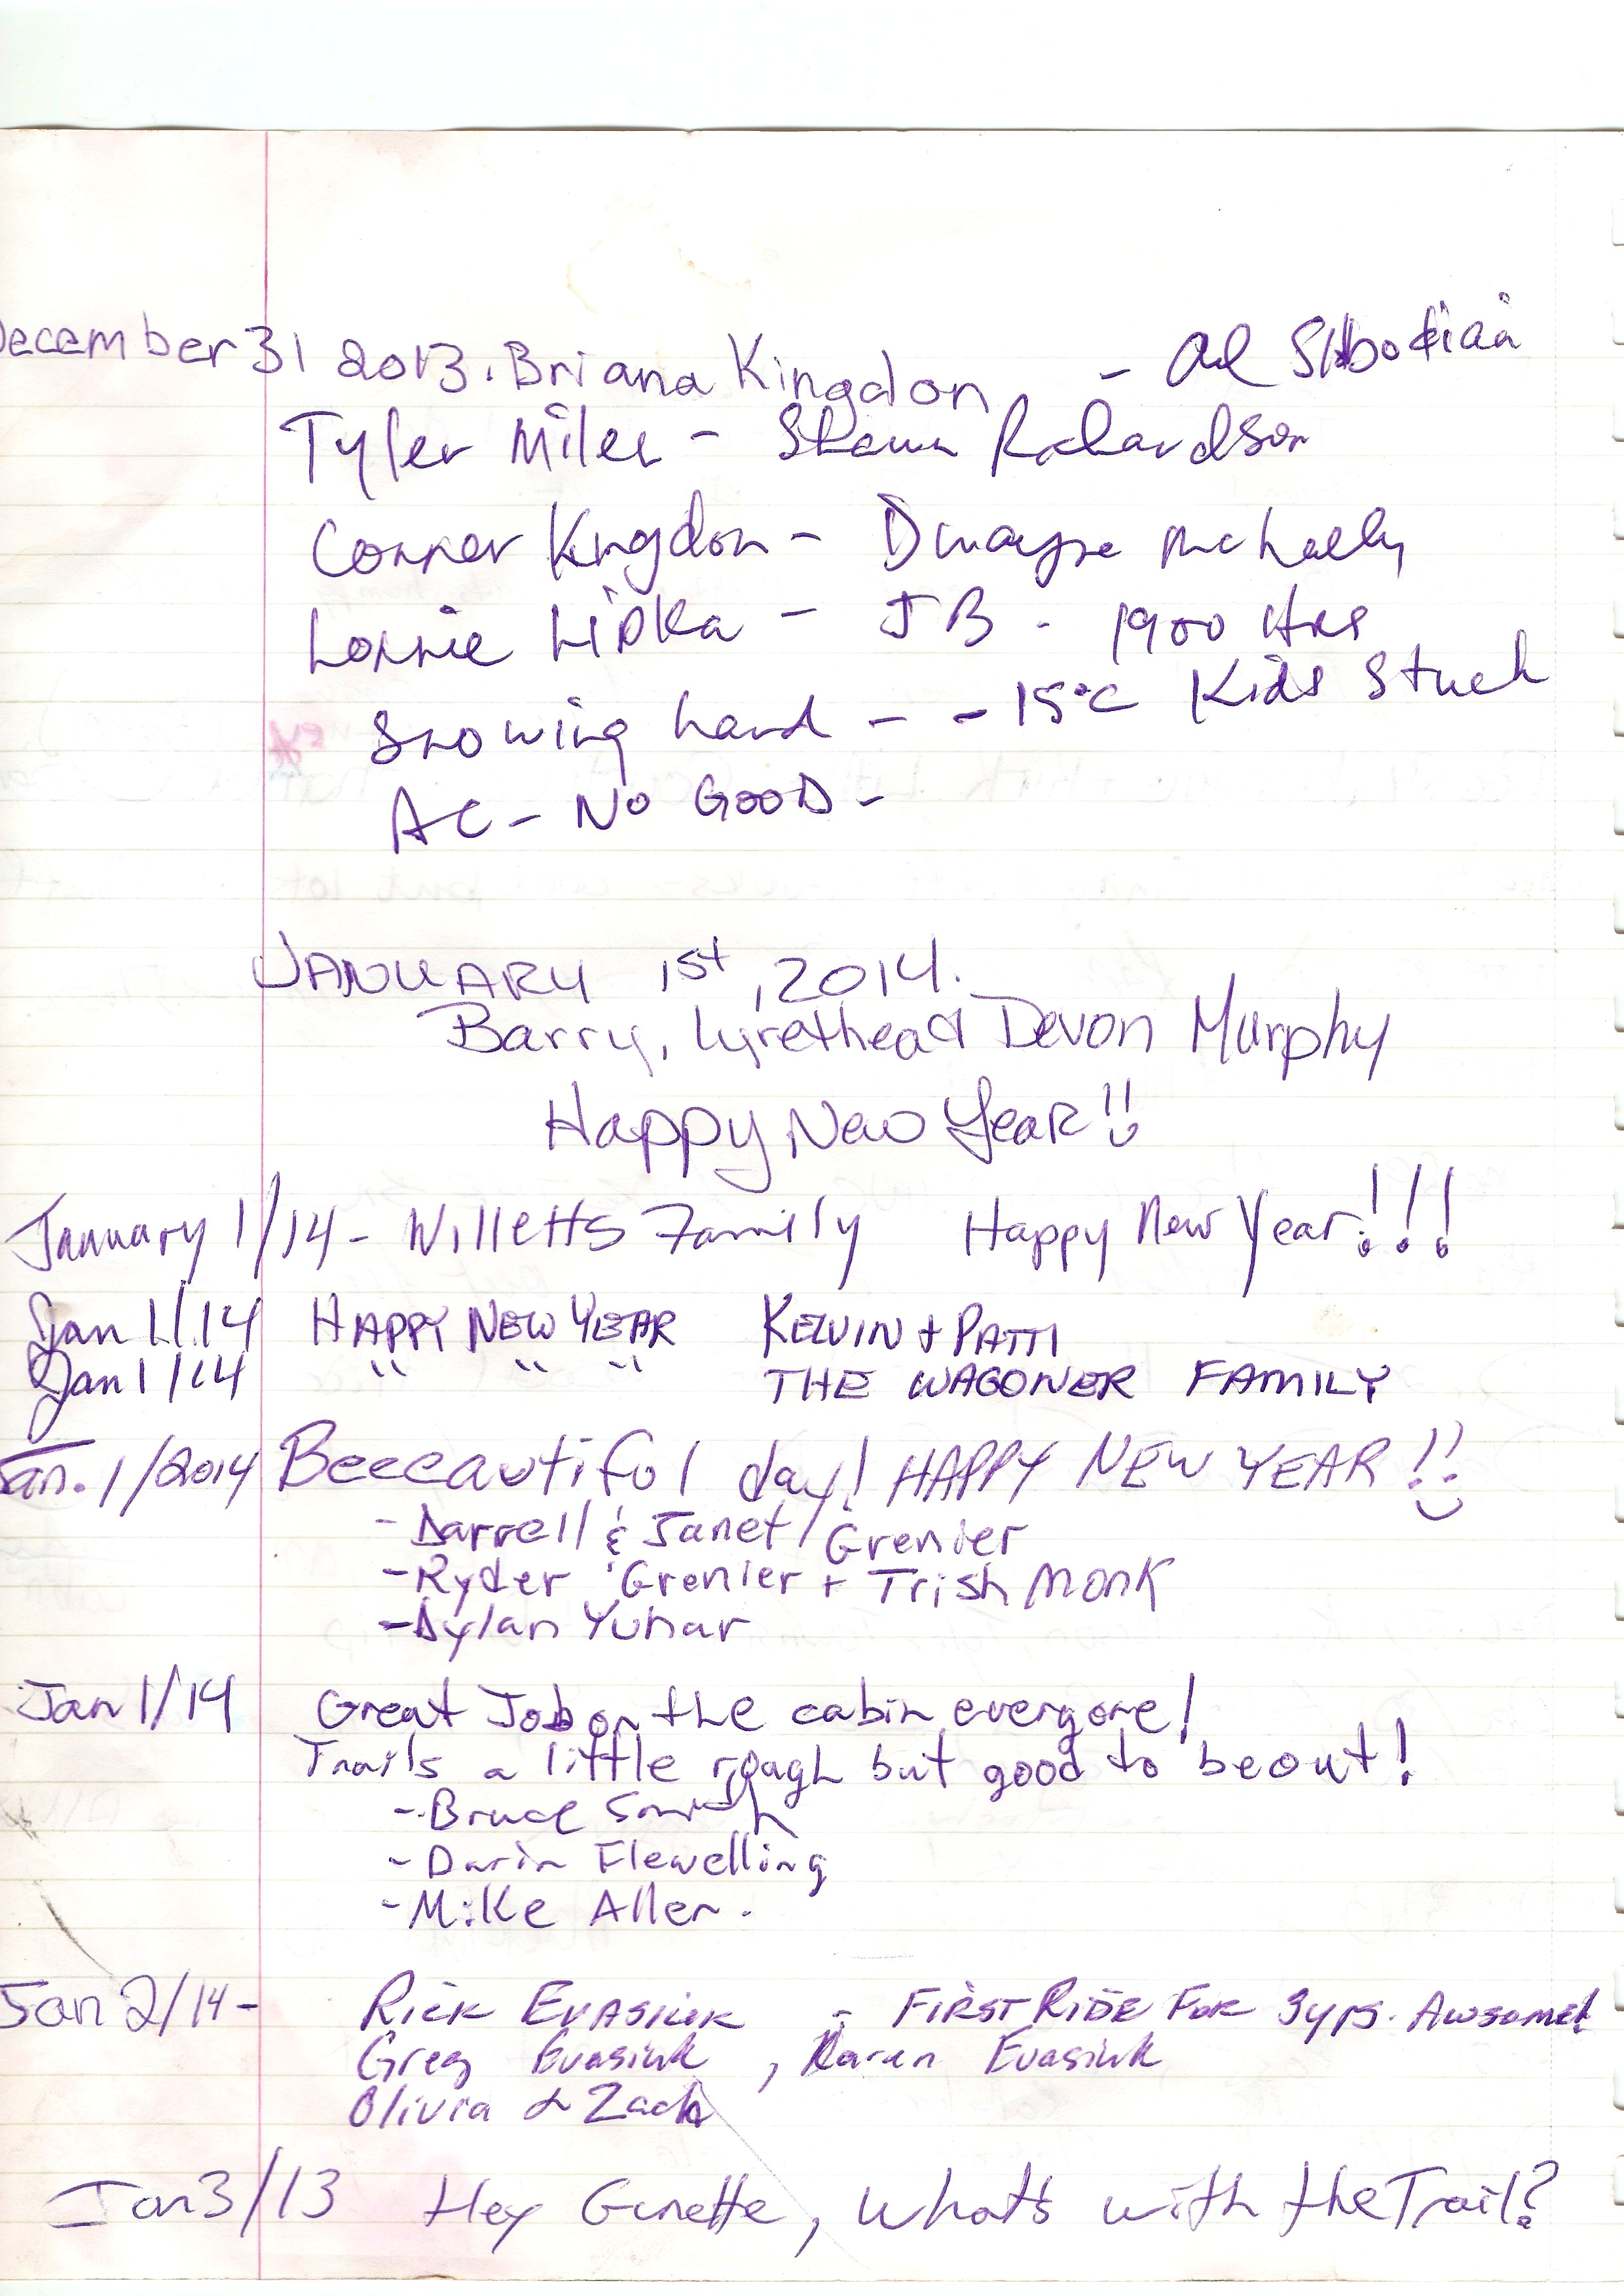 December 31 2013. Briana Kingdon - Al
Tyler Miles - Shawn Richardson
Conner Kingdon - Dwayne
Lonnie Lipka - JB - 1900 Hrs
Snowing hard - -15°C Kids Stuck
AC - NO GOOD -
JANUARY 1st, 2014.
Barry, Devon Murphy
Happy New Year!!
January 1/14 - Willetts Family Happy New Year!!!
Jan 1/14 HAPPY NEW YEAR KELVIN + PATTI
Jan 1/14 " " " THE WAGONER FAMILY
Jan. 1/2014 Beeeautiful day! HAPPY NEW YEAR!!
- Darrell & Janet Grenier
- Ryder Grenier + Trish Monk
- Dylan Yuhar
Jan 1/14 Great Job on the cabin everyone!
Trails a little rough but good to be out!
- Bruce Smith
- Darin Flewelling
- Mike Allen.
Jan 2/14 - RICK EVASIUK - FIRST RIDE FOR 3 yrs. AWSOME!
Greg Evasiuk, Karen Evasiuk
Olivia & Zach
Jan 3/13 Hey Ginette, What's with the Trail?